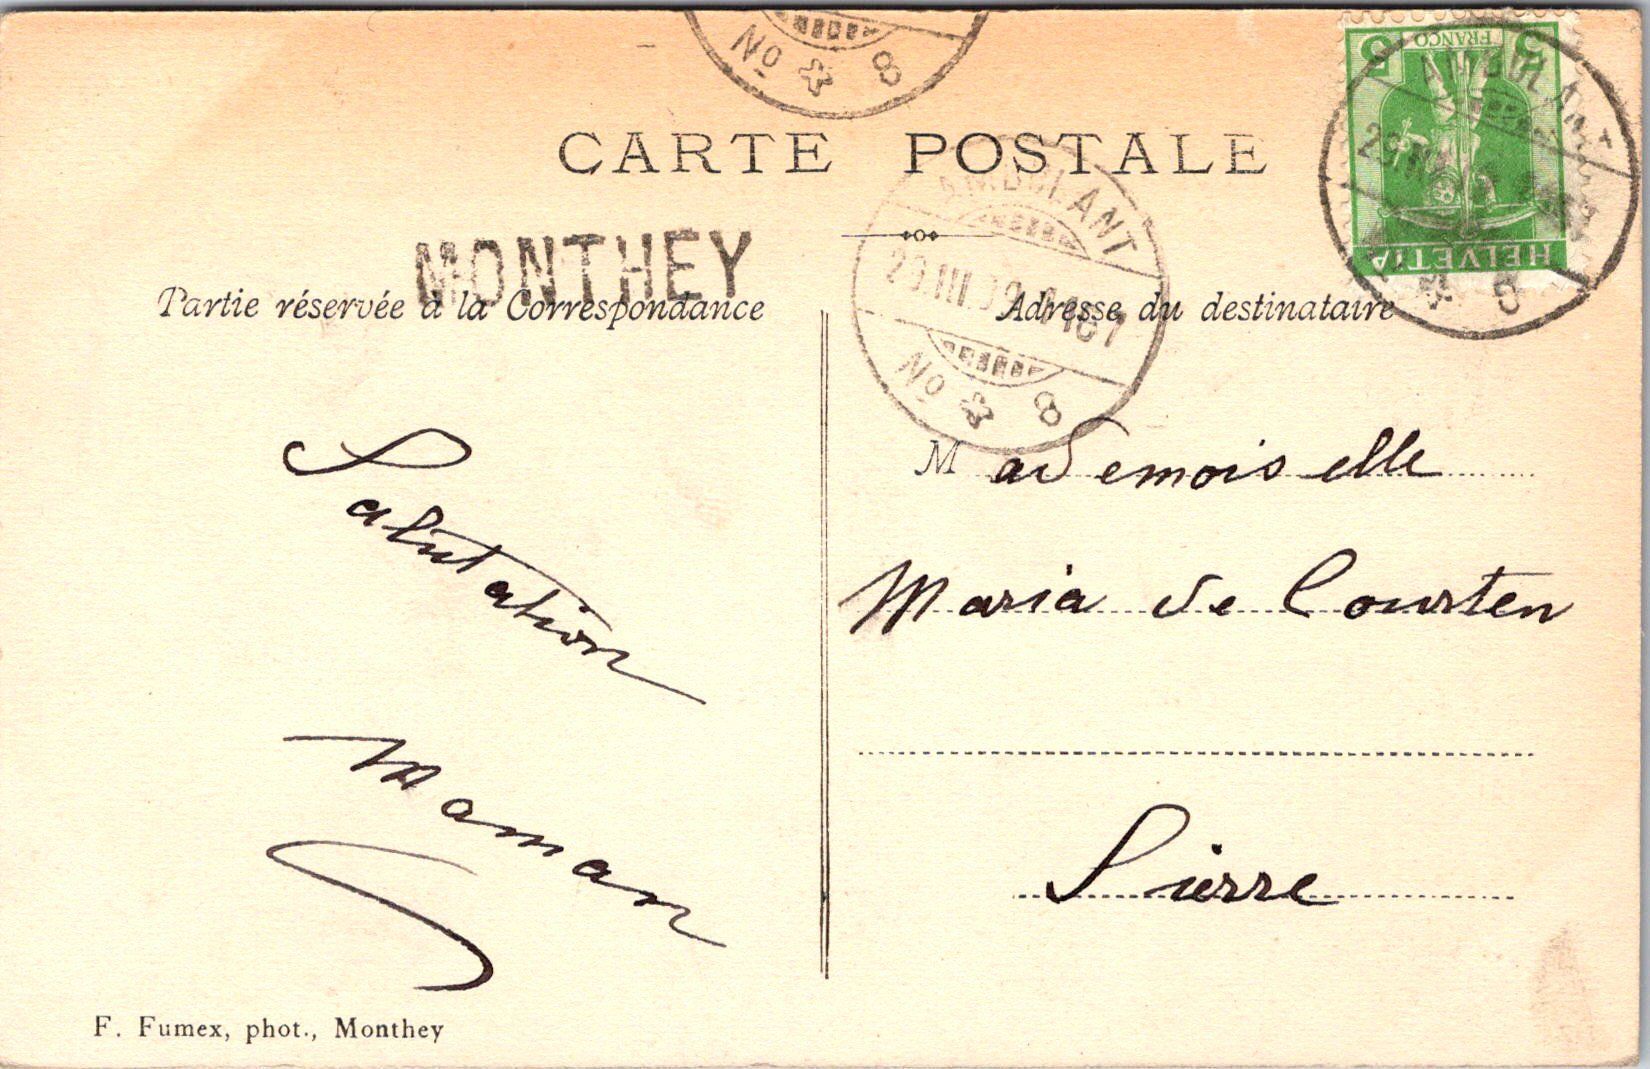 No 8
CARTE POSTALE
AMBULANT
No 8
MONTHEY
5 FRANCO 5
HELVETIA
AMBULANT
8
Partie réservée à la Correspondance
Adresse du destinataire
Salutation
Maman
Mademoiselle
Maria de Courten
Sierre
F. Fumex, phot., Monthey